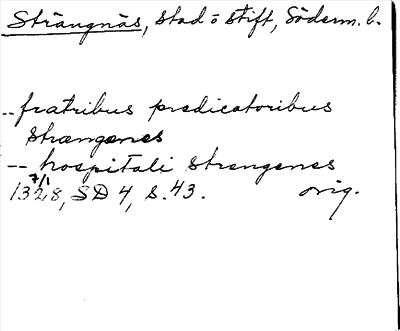 Strängnäs, stad o stift, Söderm. l.
-- fratribus predicatoribus
strængenes
-- hospitali strengenes
7/1
1328, SD 4, s. 43. orig.